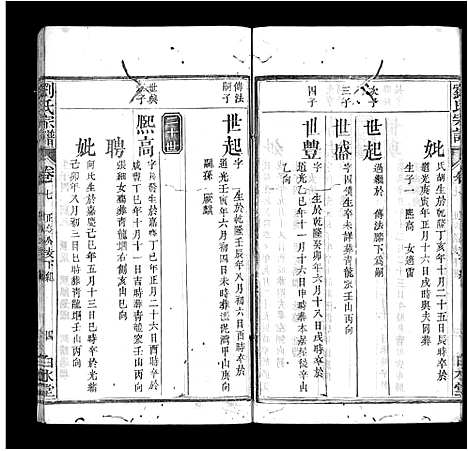 劉氏宗譜
妣
氏胡生於乾隆丁亥年十月二十五日辰時卒於
道光庚寅年正月十六日戌時與夫同葬
生子一 熙高 女適雷
次子
世起
出繼 傳法 脉下爲嗣
三子
世盛
字 因 俱生卒未詳葬青龍嘴壬山丙向
四子
世豐
字 生於乾隆癸卯六月十八日戌時卒於
道光乙巳年十一月十六日申時葬本嘉屋後辛山
乙向
白水堂
傳法
嗣子
世起
字 生於乾隆壬辰年八月初六日酉時卒於
道光壬寅年六月初四日未時葬
嗣孫 麒麟
二十世
世奠
子
熙高
字 生於嘉慶丁巳年正月二十六日酉時卒於
咸豐丁巳年十月十一日吉時葬青龍嘴壬山丙向
聘
張細女葬青龍嘴右側亥山巳向
妣
向氏生於嘉慶己巳年五月十三日巳時卒於光緒
己卯年八月初二日巳時葬青龍嘴壬山丙向
劉氏宗譜
卷七
四
白水堂